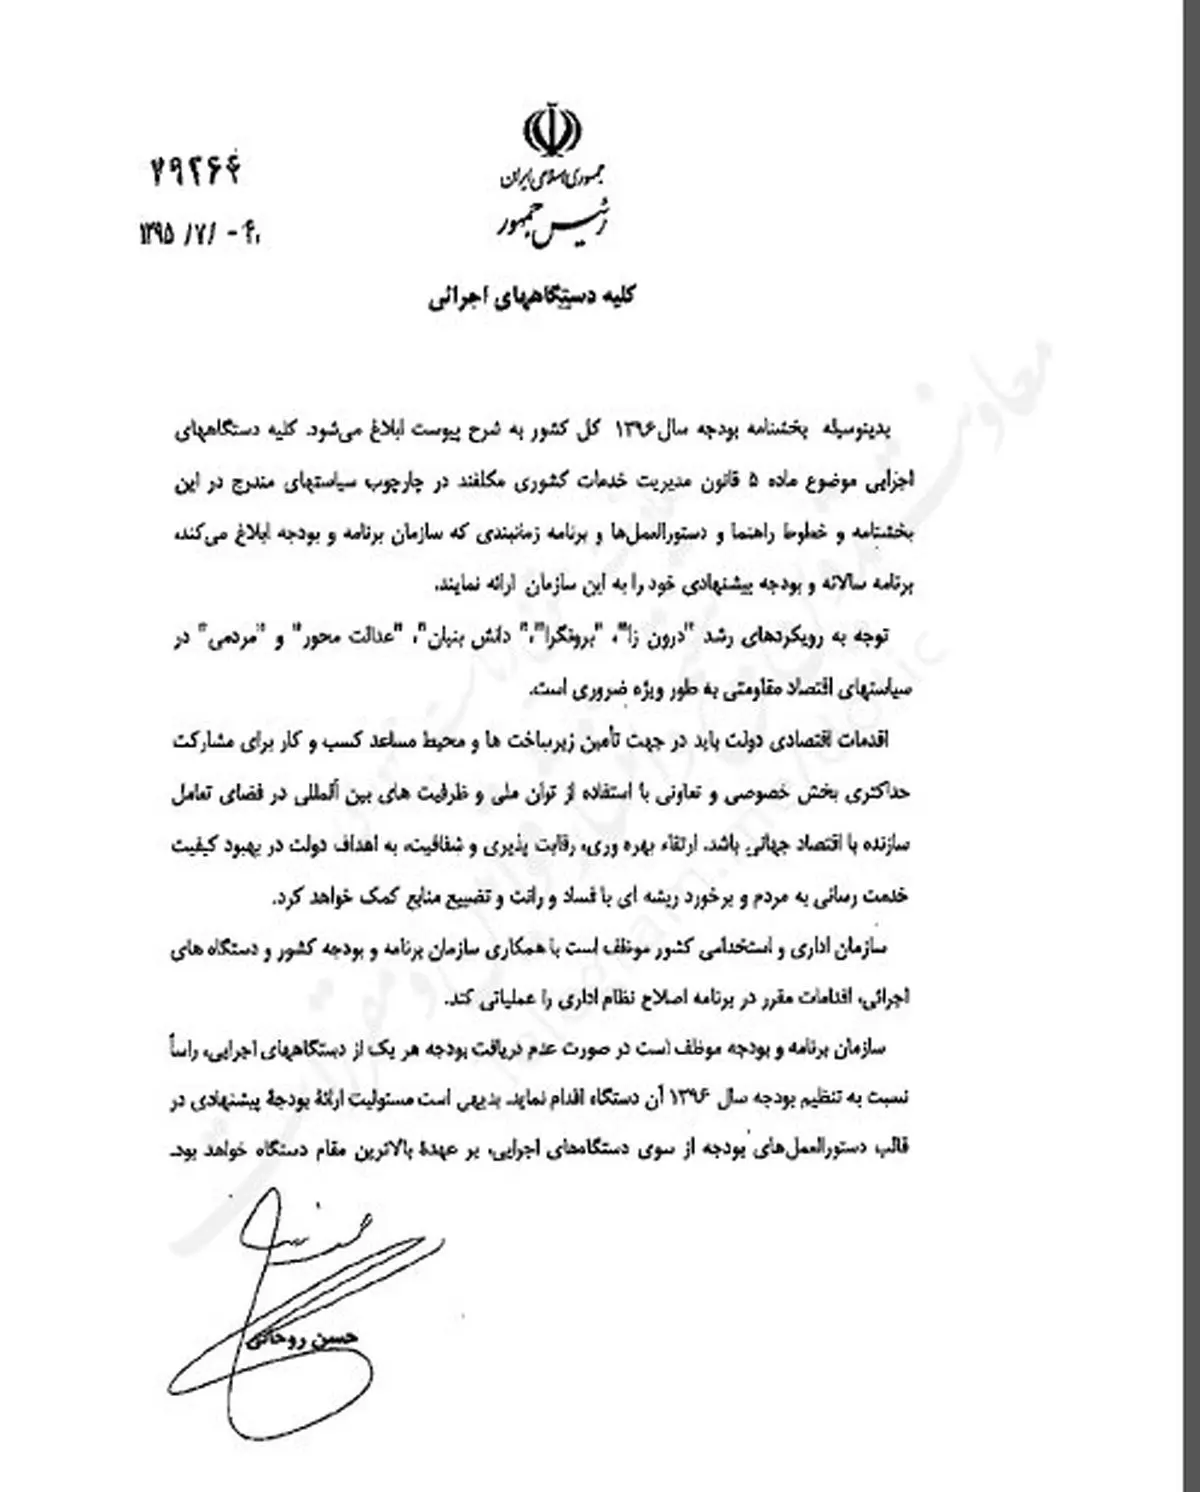 جمهوری اسلامی ایران
رئیس جمهور
۲۹۲۶۴
۱۳۹۵ /۷/
کلیه دستگاههای اجرائی
بدینوسیله بخشنامه بودجه سال ۱۳۹۶ کل کشور به شرح پیوست ابلاغ می‌شود. کلیه دستگاههای
اجرایی موضوع ماده ۵ قانون مدیریت خدمات کشوری مکلفند در چارچوب سیاستهای مندرج در این
بخشنامه و خطوط راهنما و دستورالعمل‌ها و برنامه زمانبندی که سازمان برنامه و بودجه ابلاغ می‌کند،
برنامه سالانه و بودجه پیشنهادی خود را به این سازمان ارائه نمایند.
توجه به رویکردهای رشد "درون زا"، "برونگرا"، "دانش بنیان"، "عدالت محور" و "مردمی" در
سیاستهای اقتصاد مقاومتی به طور ویژه ضروری است.
اقدمات اقتصادی دولت باید در جهت تأمین زیرساخت ها و محیط مساعد کسب و کار برای مشارکت
حداکثری بخش خصوصی و تعاونی با استفاده از توان ملی و ظرفیت های بین ألمللی در فضای تعامل
سازنده با اقتصاد جهانی باشد. ارتقاء بهره وری، رقابت پذیری و شفافیت، به اهداف دولت در بهبود کیفیت
خدمت رسانی به مردم و برخورد ریشه ای با فساد و رانت و تضییع منابع کمک خواهد کرد.
سازمان اداری و استخدامی کشور موظف است با همکاری سازمان برنامه و بودجه کشور و دستگاه های
اجرائی، اقدامات مقرر در برنامه اصلاح نظام اداری را عملیاتی کند.
سازمان برنامه و بودجه موظف است در صورت عدم دریافت بودجه هر یک از دستگاههای اجرایی، رأساً
نسبت به تنظیم بودجه سال ۱۳۹۶ آن دستگاه اقدام نماید. بدیهی است مسئولیت ارائهٔ بودجهٔ پیشنهادی در
قالب دستورالعمل‌های بودجه از سوی دستگاه‌های اجرایی، بر عهدهٔ بالاترین مقام دستگاه خواهد بود.
حسن روحانی